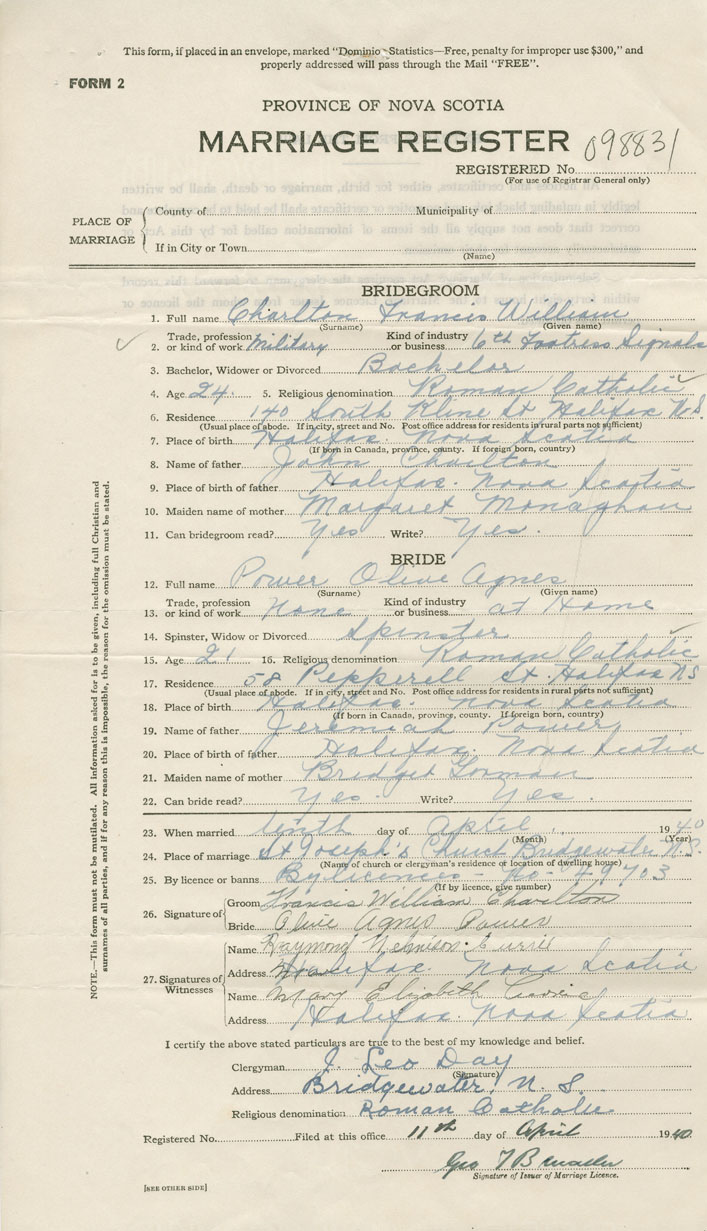 This form, if placed in an envelope, marked "Dominio Statistics—Free, penalty for improper use $300," and
properly addressed will pass through the Mail "FREE".
FORM 2
PROVINCE OF NOVA SCOTIA
MARRIAGE REGISTER 098831
REGISTERED No.
(For use of Registrar General only)
PLACE OF MARRIAGE
County of Municipality of
If in City or Town
(Name)
BRIDEGROOM
1. Full name Charlton Francis William
(Surname) (Given name)
2. Trade, profession or kind of work Military Kind of industry or business 6th Fortress Signals
3. Bachelor, Widower or Divorced Bachelor
4. Age 24 5. Religious denomination Roman Catholic
6. Residence 140 South Kline St Halifax N.S.
(Usual place of abode. If in city, street and No. Post office address for residents in rural parts not sufficient)
7. Place of birth Halifax. Nova Scotia
(If born in Canada, province, county. If foreign born, country)
8. Name of father John Charlton
9. Place of birth of father Halifax. Nova Scotia
10. Maiden name of mother Margaret Monaghan
11. Can bridegroom read? Yes Write? Yes.
BRIDE
12. Full name Power Olive Agnes
(Surname) (Given name)
13. Trade, profession or kind of work None Kind of industry or business at Home
14. Spinster, Widow or Divorced Spinster
15. Age 21 16. Religious denomination Roman Catholic
17. Residence 58 Pepperell St. Halifax NS
(Usual place of abode. If in city, street and No. Post office address for residents in rural parts not sufficient)
18. Place of birth Halifax. Nova Scotia
(If born in Canada, province, county. If foreign born, country)
19. Name of father Jeremiah Power
20. Place of birth of father Halifax. Nova Scotia
21. Maiden name of mother Bridget Gorman
22. Can bride read? Yes. Write? Yes.
23. When married tenth day of April 1940
(Month) (Year)
24. Place of marriage St Joseph's Church Bridgewater N.S.
(Name of church or clergyman's residence or location of dwelling house)
25. By licence or banns By licences - No - 49703
(If by licence, give number)
26. Signature of
Groom Francis William Charlton
Bride Olive Agnes Power
27. Signatures of Witnesses
Name Raymond
Address Halifax. Nova Scotia
Name Mary Elizabeth
Address Halifax. Nova Scotia
I certify the above stated particulars are true to the best of my knowledge and belief.
Clergyman J. Leo Day
(Signature)
Address Bridgewater, N. S.
Religious denomination Roman Catholic
Registered No. Filed at this office 11th day of April 1940.
Geo
Signature of Issuer of Marriage Licence.
[SEE OTHER SIDE]
NOTE.—This form must not be mutilated. All information asked for is to be given, including full Christian and
surnames of all parties, and if for any reason this is impossible, the reason for the omission must be stated.